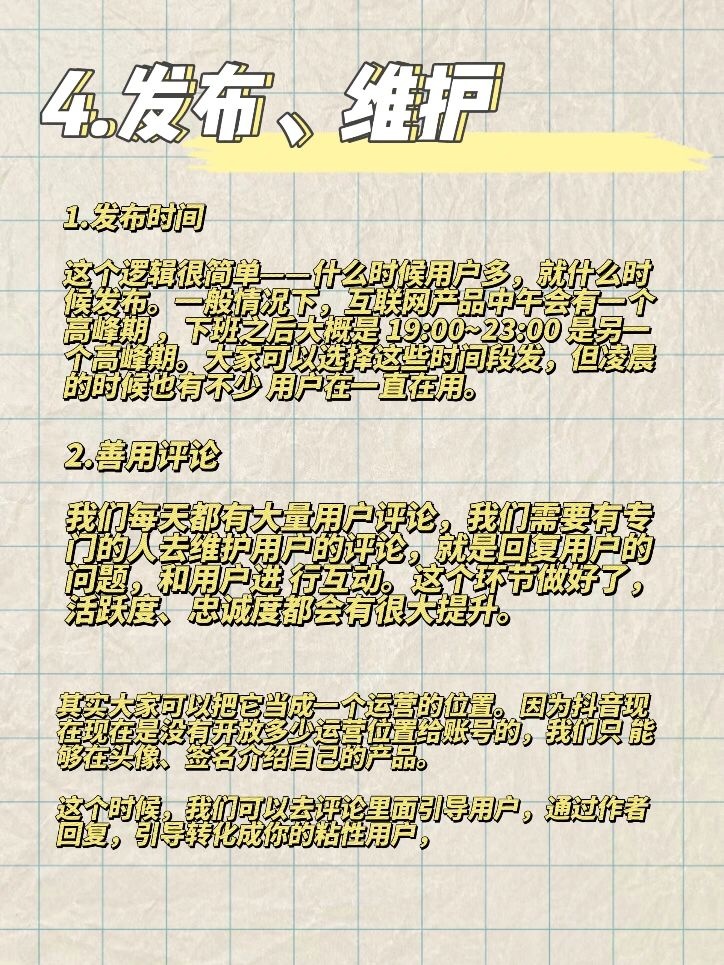 4.发布、维护
1.发布时间
这个逻辑很简单——什么时候用户多，就什么时
候发布。一般情况下，互联网产品中午会有一个
高峰期 ，下班之后大概是 19:00~23:00 是另一
个高峰期。大家可以选择这些时间段发，但凌晨
的时候也有不少 用户在一直在用。
2.善用评论
我们每天都有大量用户评论，我们需要有专
门的人去维护用户的评论，就是回复用户的
问题，和用户进 行互动。这个环节做好了，
活跃度、忠诚度都会有很大提升。
其实大家可以把它当成一个运营的位置。因为抖音现
在现在是没有开放多少运营位置给账号的，我们只 能
够在头像、签名介绍自己的产品。
这个时候，我们可以去评论里面引导用户，通过作者
回复，引导转化成你的粘性用户，